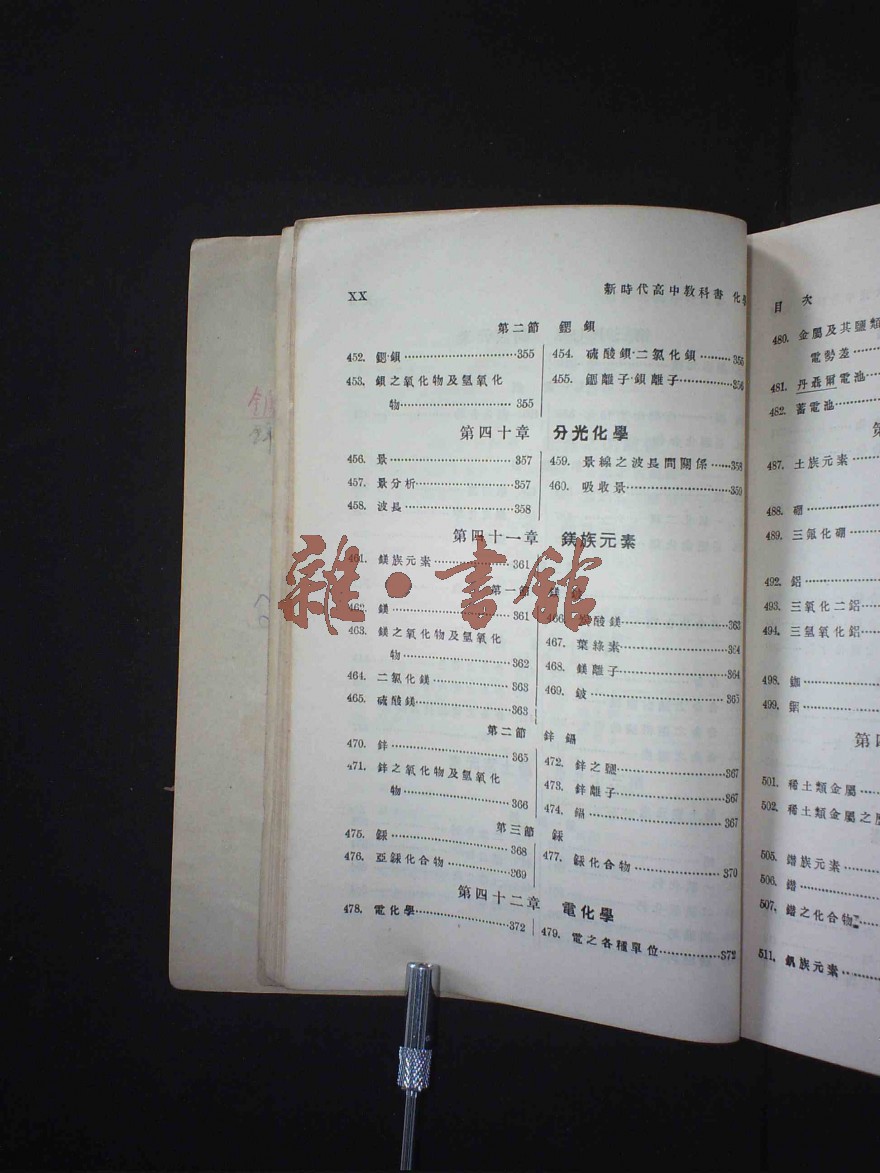 XX
新時代高中教科書 化學
第二節 鍶 鋇
452. 鍶·鋇……355
453. 鋇之氧化物及氫氧化
物……355
454. 硫酸鋇·二氯化鋇……355
455. 鍶離子·鋇離子……356
第四十章 分光化學
456. 景……357
457. 景分析……357
458. 波長……358
459. 景線之波長間關係……358
460. 吸收景……359
第四十一章 鎂族元素
461. 鎂族元素……361
第一節
462. 鎂……361
463. 鎂之氧化物及氫氧化
物……362
464. 二氯化鎂……363
465. 硫酸鎂……363
466. 酸鎂……363
467. 葉綠素……364
468. 鎂離子……364
469. 鈹……365
第二節 鋅 鎘
470. 鋅……365
471. 鋅之氧化物及氫氧化
物……366
472. 鋅之鹽……367
473. 鋅離子……367
474. 鎘……367
第三節 銾
475. 銾……368
476. 亞銾化合物……369
477. 銾化合物……370
第四十二章 電化學
478. 電化學……372
479. 電之各種單位……372
目 次
480. 金屬及其鹽類
電勢差……
481. 丹聶爾電池……
482. 蓄電池……
487. 土族元素……
488. 硼……
489. 三氟化硼……
492. 鋁……
493. 三氧化二鋁……
494. 三氫氧化鋁……
498. 鉫……
499. 銦……
501. 稀土類金屬……
502. 稀土類金屬之
505. 鍇族元素……
506. 鍇……
507. 鍇之化合物……
511. 釩族元素……
雜·書館